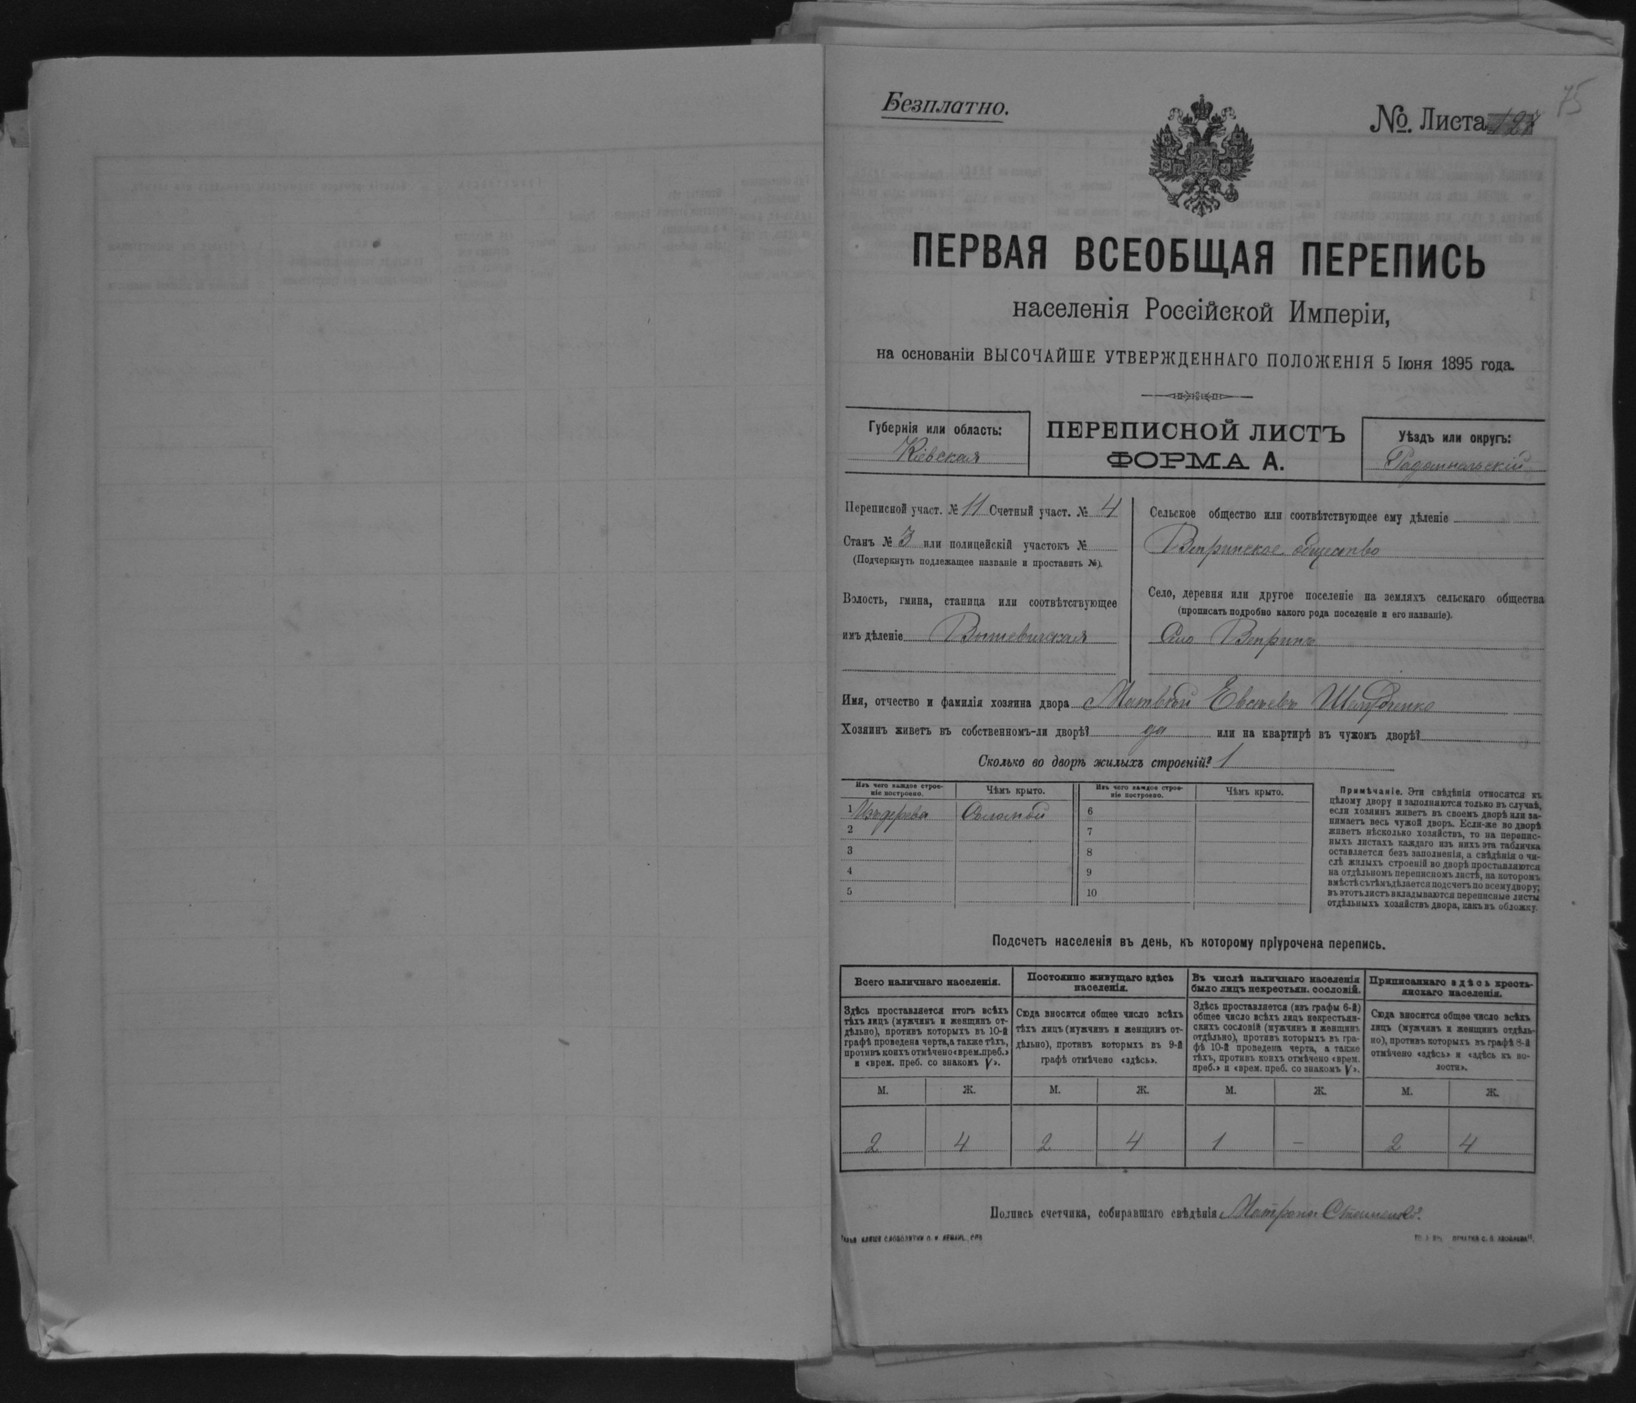 75
Безплатно.
№. Листа
ПЕРВАЯ ВСЕОБЩАЯ ПЕРЕПИСЬ
населенія Россійской Имперіи,
на основаніи ВЫСОЧАЙШЕ УТВЕРЖДЕННАГО ПОЛОЖЕНІЯ 5 Іюня 1895 года.
Губернія или область:
Кіевская
ПЕРЕПИСНОЙ ЛИСТЪ
ФОРМА А.
Уѣздъ или округъ:
Радомысльскій
Переписной участ. № 11 Счетный участ. № 4
Станъ № 3 или полицейскій участокъ №
(Подчеркнуть подлежащее названіе и проставить №).
Волость, гмина, станица или соотвѣтствующее
имъ дѣленіе Вышевичская
Сельское общество или соотвѣтствующее ему дѣленіе
Вепринское общество
Село, деревня или другое поселеніе на земляхъ сельскаго общества
(прописать подробно какого рода поселеніе и его названіе).
Село Вепринъ
Имя, отчество и фамилія хозяина двора Матвѣй
Хозяинъ живетъ въ собственномъ-ли дворѣ? да или на квартирѣ въ чужомъ дворѣ?
Сколько во дворѣ жилыхъ строеній? 1
Изъ чего каждое строе-
ніе построено.
Чѣмъ крыто.
Изъ чего каждое строе-
ніе построено.
Чѣмъ крыто.
1 Изъ дерева Соломой 6
2 7
3 8
4 9
5 10
Примѣчаніе. Эти свѣдѣнія относятся къ
цѣлому двору и заполняются только въ случаѣ,
если хозяинъ живетъ въ своемъ дворѣ или за-
нимаетъ весь чужой дворъ. Если-же во дворѣ
живетъ нѣсколько хозяйствъ, то на перепис-
ныхъ листахъ каждаго изъ нихъ эта табличка
оставляется безъ заполненія, а свѣдѣнія о чи-
слѣ жилыхъ строеній во дворѣ проставляются
на отдѣльномъ переписномъ листѣ, на которомъ
вмѣстѣ съ тѣмъ дѣлается подсчетъ по всему двору;
въ этотъ листъ вкладываются переписные листы
отдѣльныхъ хозяйствъ двора, какъ въ обложку.
Подсчетъ населенія въ день, къ которому пріурочена перепись.
Всего наличнаго населенія.
Здѣсь проставляется итогъ всѣхъ
тѣхъ лицъ (мужчинъ и женщинъ от-
дѣльно), противъ которыхъ въ 10-й
графѣ проведена черта, а также тѣхъ,
противъ коихъ отмѣчено «врем. преб.»
и «врем. преб. со знакомъ V».
Постоянно живущаго здѣсь
населенія.
Сюда вносится общее число всѣхъ
тѣхъ лицъ (мужчинъ и женщинъ от-
дѣльно), противъ которыхъ въ 9-й
графѣ отмѣчено «здѣсь».
Въ числѣ наличнаго населенія
было лицъ некрестьян. сословій.
Здѣсь проставляется (изъ графы 6-й)
общее число всѣхъ лицъ некрестьян-
скихъ сословій (мужчинъ и женщинъ
отдѣльно), противъ которыхъ въ гра-
фѣ 10-й проведена черта, а также
тѣхъ, противъ коихъ отмѣчено «врем.
преб.» и «врем. преб. со знакомъ V».
Приписаннаго здѣсь кресть-
янскаго населенія.
Сюда вносится общее число всѣхъ
лицъ (мужчинъ и женщинъ отдѣль-
но), противъ которыхъ въ графѣ 8-й
отмѣчено «здѣсь» и «здѣсь въ во-
лости».
М. Ж. М. Ж. М. Ж. М. Ж.
2 4 2 4 1 — 2 4
Подпись счетчика, собиравшаго свѣдѣнія